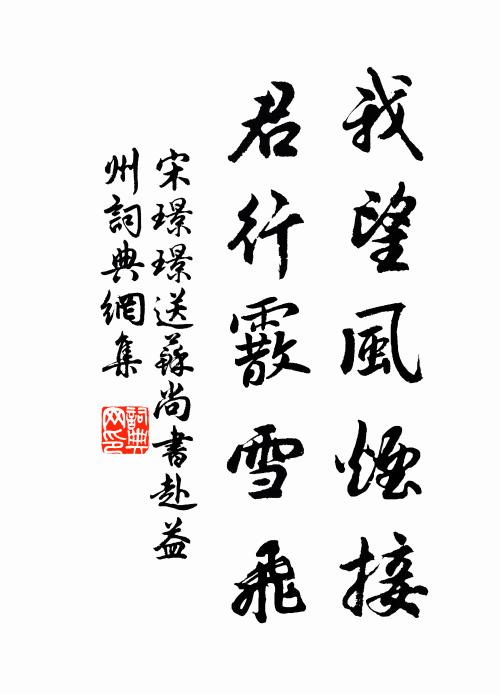 我望風煙接
君行霰雪飛
宋璟璟送蘇尚書赴益
州詞典網集
詞典
网印